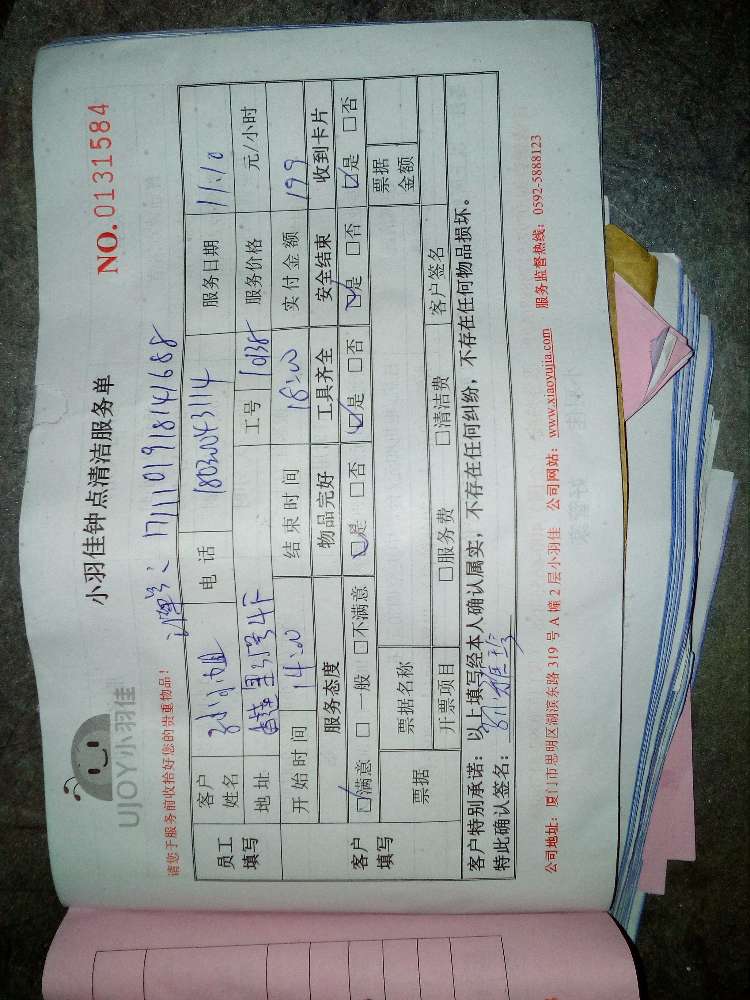 UJOY小羽佳
小羽佳钟点清洁服务单
NO.0131584
请您于服务前收拾好您的贵重物品!
1711101918141688
员工填写
客户姓名 电话 18030043114 服务日期 11.10
地址 31号4F 工号 1038 服务价格 元/小时
客户填写
开始时间 14:00 结束时间 16:00 实付金额 199
服务态度 物品完好 工具齐全 安全结束 收到卡片
☑满意 □一般 □不满意 ☑是 □否 ☑是 □否 ☑是 □否 ☑是 □否
票据 票据名称 票据金额
开票项目 □服务费 □清洁费 客户签名
客户特别承诺:以上填写经本人确认属实,不存在任何纠纷,不存在任何物品损坏。
特此确认签名:
公司地址:厦门市思明区湖滨东路319号A幢2层小羽佳 公司网站:www.xiaoyujia.com 服务监督热线:0592-5888123